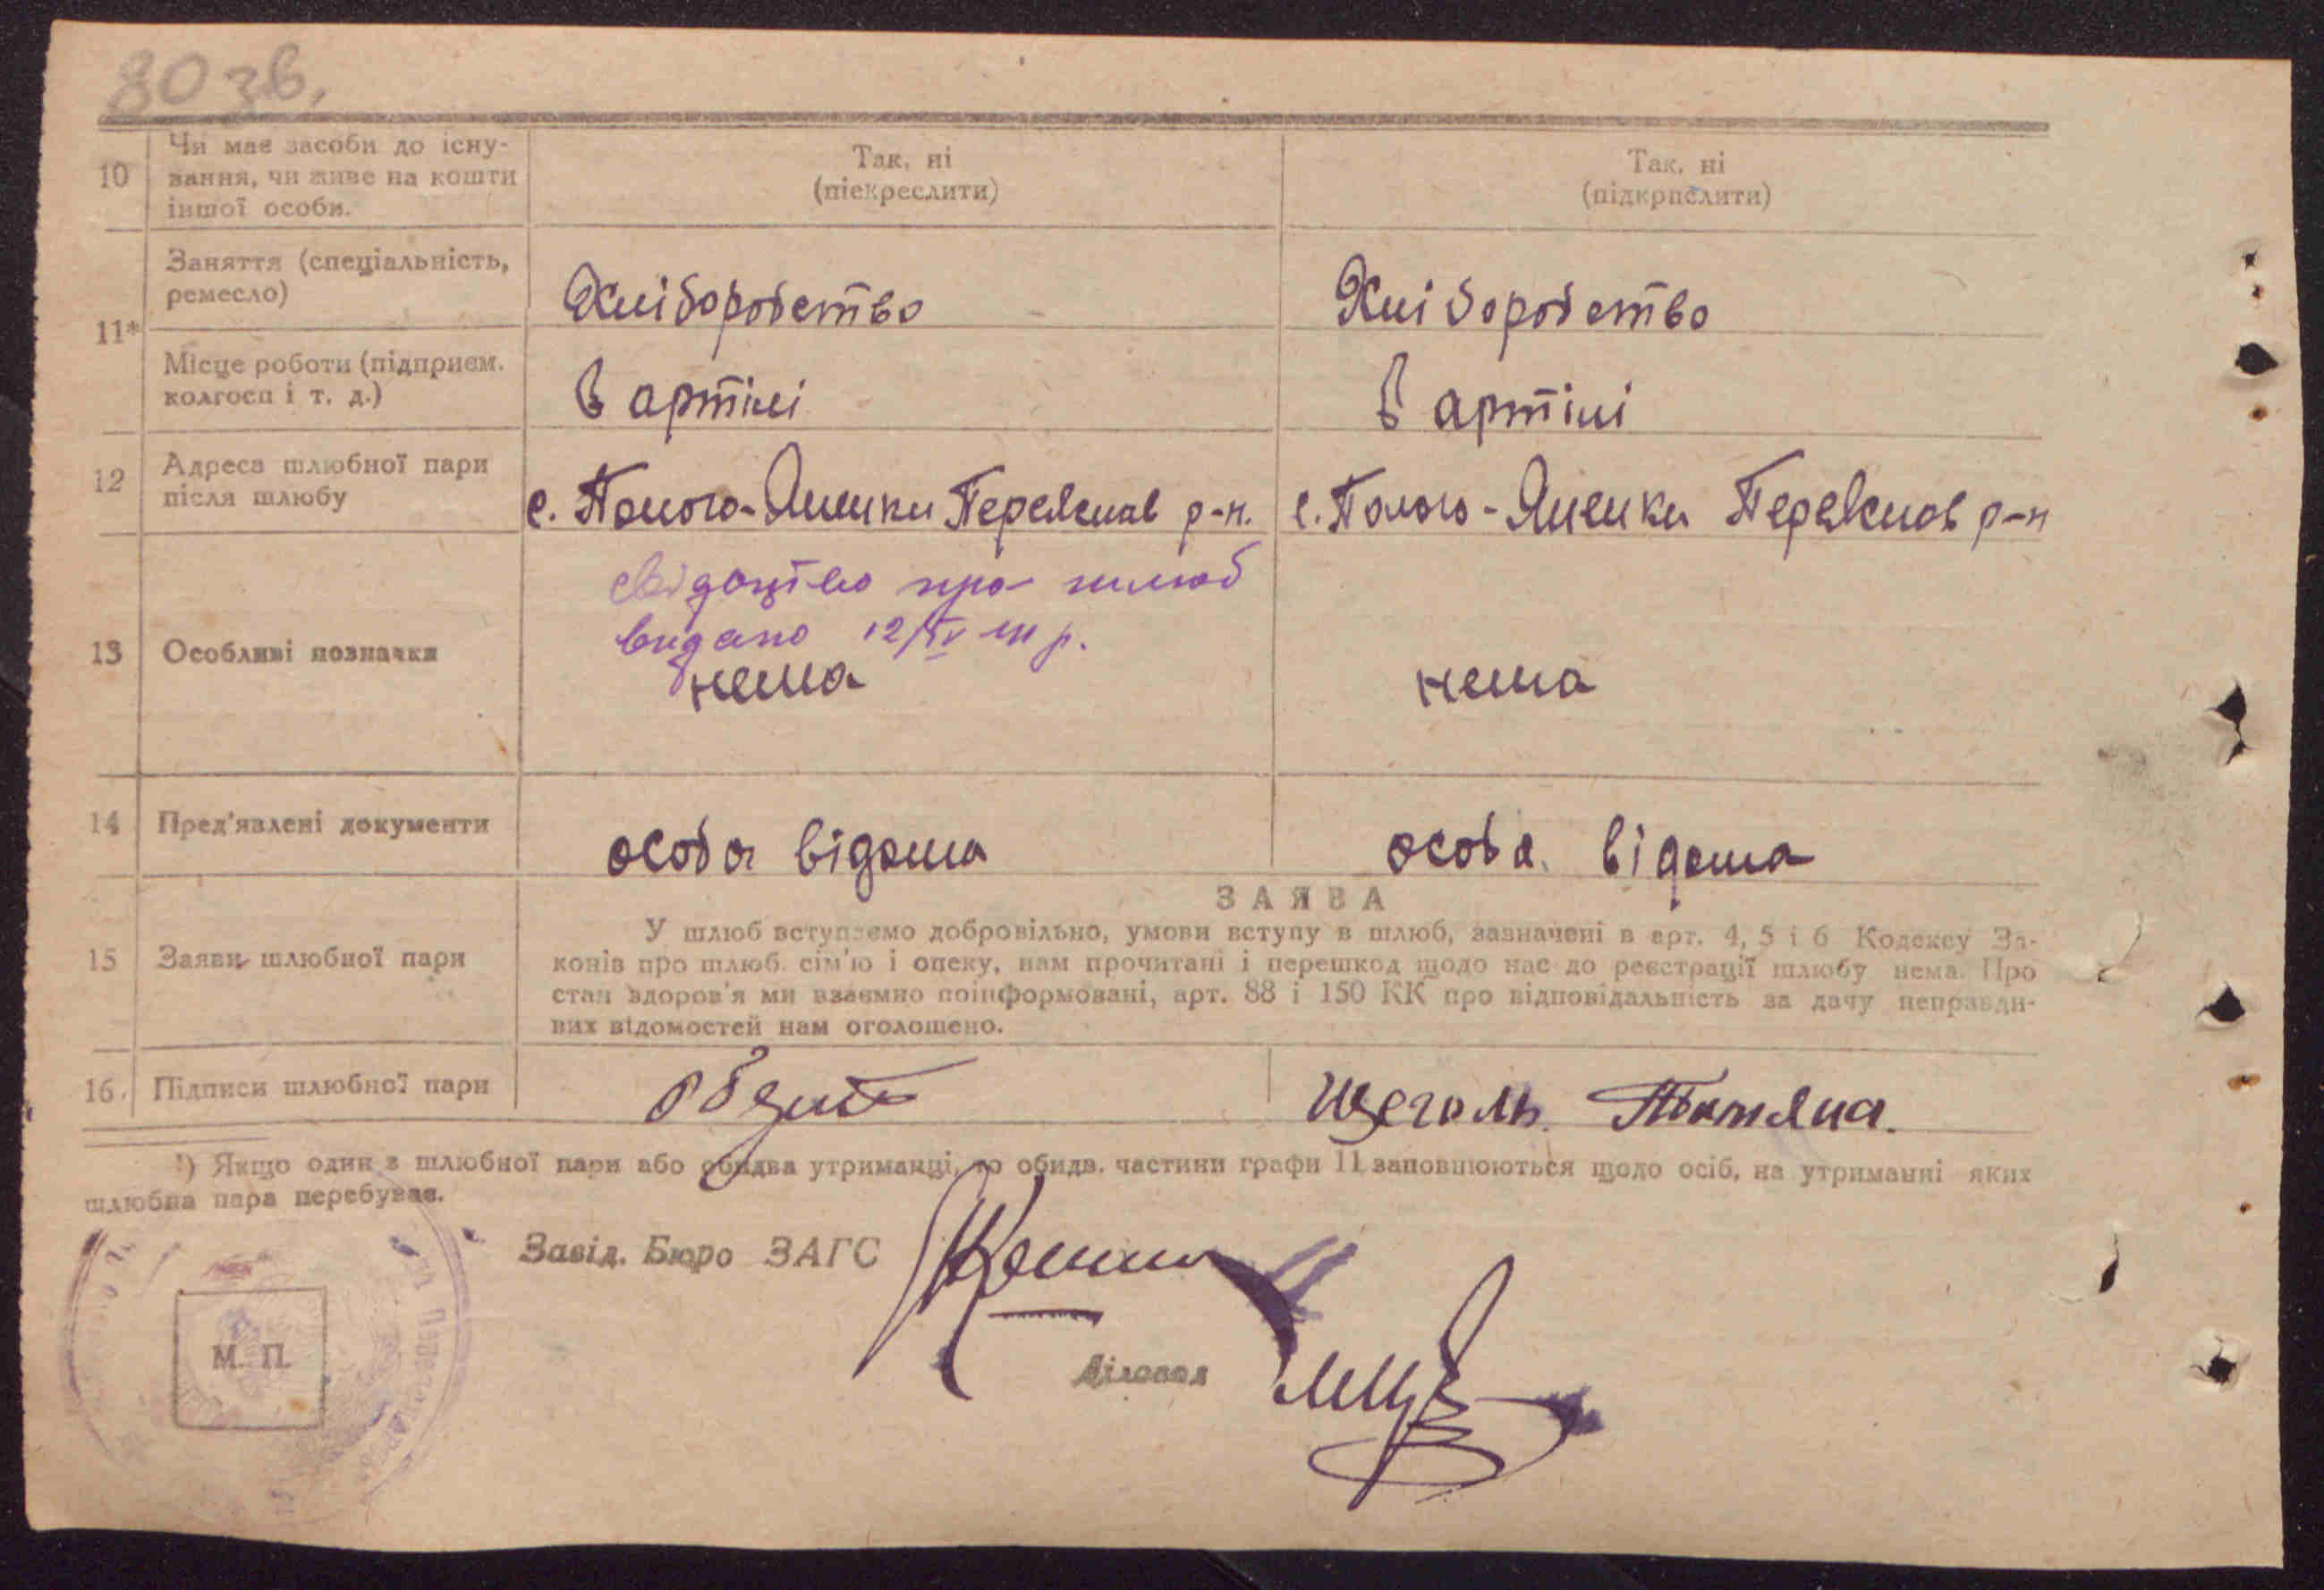 80 зв.
10
Чи має засоби до існу-
вання, чи живе на кошти
іншої особи.
Так, ні
(піекреслити)
Так, ні
(підкрпслити)
11*
Заняття (спеціальність,
ремесло)
Хліборобство
Хліборобство
Місце роботи (підприєм.
колгосп і т. д.)
в артілі
в артілі
12
Адреса шлюбної пари
після шлюбу
с. Полого-Яненки Переяслав р-н.
с. Полого-Яненки Переяслав р-н
13
Особливі позначки
свідоцтво про шлюб
видано 12/IV р.
нема
нема
14
Пред'явлені документи
особа відома
особа відома
15
Заяви шлюбної пари
ЗАЯВА
У шлюб вступаємо добровільно, умови вступу в шлюб, зазначені в арт. 4, 5 і 6 Кодексу За-
конів про шлюб. сім'ю і опеку, нам прочитані і перешкод щодо нас до реєстрації шлюбу нема. Про
стан здоров'я ми взаємно поінформовані, арт. 88 і 150 КК про відповідальність за дачу неправди-
вих відомостей нам оголошено.
16.
Підписи шлюбної пари
Щеголь. Татяна.
¹) Якщо один з шлюбної пари або обидва утриманці, то обидв. частини графи 11 заповнюються щодо осіб, на утриманні яких
шлюбна пара перебуває.
Завід. Бюро ЗАГС
М. П.
Діловод